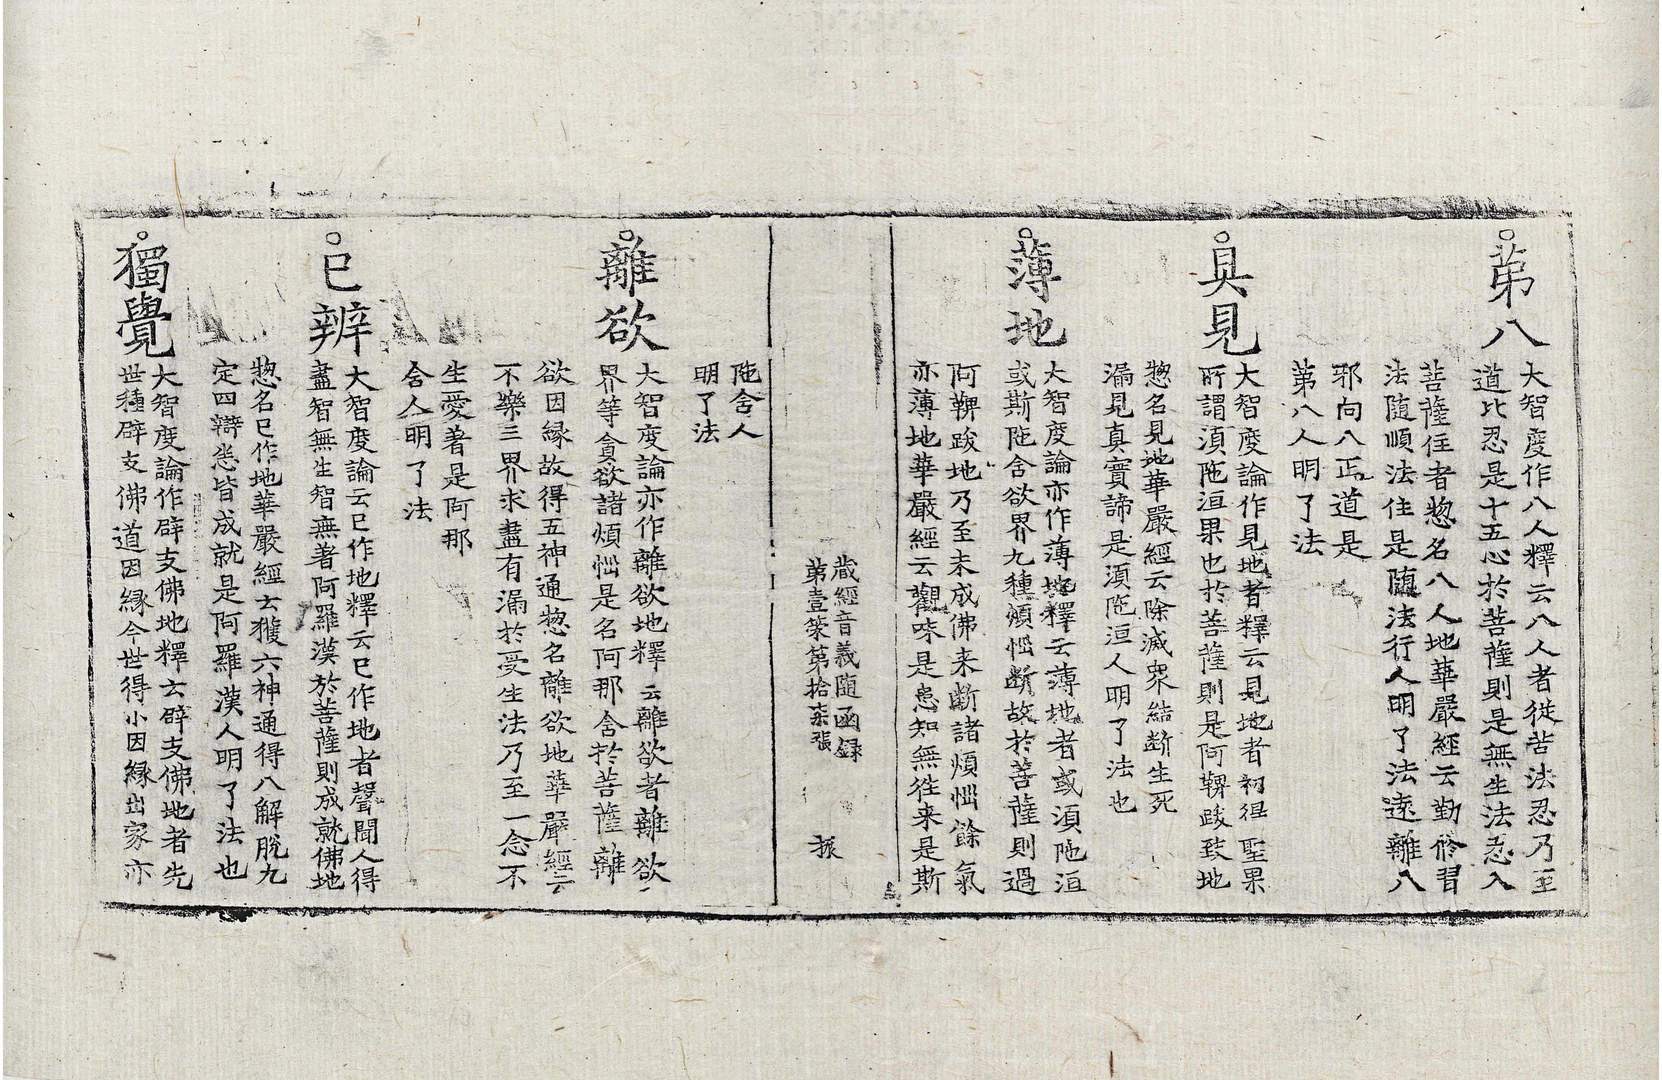 第八
大智度作八人釋云八人者從苦法忍乃至
道比忍是十五心於菩薩則是無生法忍入
菩薩位者惣名八人地華嚴經云勤脩習
法隨順法住是隨法行人明了法遠離八
邪向八正道是
第八人明了法
具見
大智度論作見地者釋云見地者初得聖果
所謂湏陁洹果也於菩薩則是阿鞞跋致地
惣名見地華嚴經云除滅衆結斷生死
漏見真實諦是湏陁洹人明了法也
薄地
大智度論亦作薄地釋云薄地者或湏陁洹
或斯陁含欲界九種煩惱斷故於菩薩則過
阿鞞跋地乃至未成佛来斷諸煩惱餘氣
亦薄地華嚴經云觀味是患知無徃来是斯
藏經音義隨函録
第壹筞第拾柒張 振
陁舍人
明了法
離欲
大智度論亦作離欲地釋云離欲者離欲
界等貪欲諸煩惱是名阿那舍於菩薩離
欲因縁故得五神通惣名離欲地華嚴經云
不樂三界求盡有漏於受生法乃至一念不
生愛著是阿那
舍人明了法
已辨
大智度論云已作地釋云已作地者聲聞人得
盡智無生智無著阿羅漢於菩薩則成就佛地
惣名已作地華嚴經云獲六神通得八解脫九
定四辯悉皆成就是阿羅漢人明了法也
獨覺
大智度論作辟支佛地釋云辟支佛地者先
世種辟支佛道因縁今世得小因縁出家亦